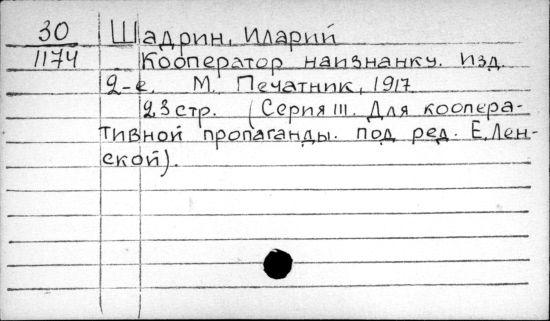 30
1174
Шадрин, Иларий
Кооператор наизнанку. Изд.
2-е. М. Печатник, 1917
23 стр. (Серия III. Для коопера-
тивной пропаганды. под ред. Е. Лен-
ской).